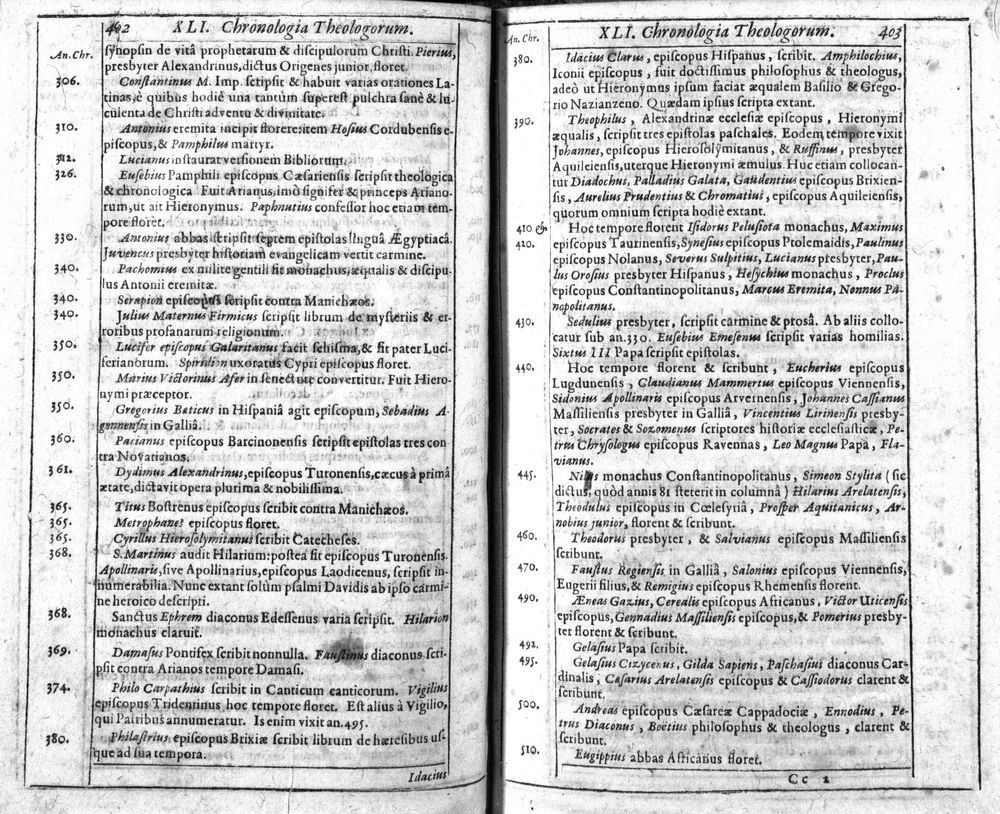 402 XLI. Chronologia Theologorum.
An. Chr.
synopsin de vitâ prophetarum & discipulorum Christi. Pierius,
presbyter Alexandrinus, dictus Origenes junior, floret.
306. Constantinus M. Imp. scripsit & habuit varias orationes La-
tinas, è quibus hodiè una tantùm superest pulchra sanè & lu-
culenta de Christi adventu & divinitate.
310. Antonius eremita incipit florere: item Hosius Cordubensis e-
piscopus, & Pamphilus martyr.
312. Lucianus instaurat versionem Bibliorum.
326. Eusebius Pamphili episcopus Cæsariensis scripsit theologica
& chronologica Fuit Arianus, imò signifer & princeps Ariano-
rum, ut ait Hieronymus. Paphnutius confessor hoc etiam tem-
pore floret.
330. Antonius abbas scripsit septem epistolas linguâ Ægyptiacâ.
Juvencus presbyter historiam evangelicam vertit carmine.
340. Pachomius ex milite gentili fit monachus, æqualis & discipu-
lus Antonii eremitæ.
340. Serapion episcopus scripsit contra Manichæos.
340. Julius Maternus Firmicus scripsit librum de mysteriis & er-
roribus profanarum religionum.
350. Lucifer episcopus Galaritanus facit schisma, & fit pater Luci-
ferianorum. Spiridion uxoratus Cypri episcopus floret.
350. Marius Victorinus Afer in senectute convertitur. Fuit Hiero-
nymi præceptor.
350. Gregorius Bæticus in Hispaniâ agit episcopum, Sebadius A-
gennensis in Galliâ.
360. Pacianus episcopus Barcinonensis scripsit epistolas tres con-
tra Novatianos.
361. Dydimus Alexandrinus, episcopus Turonensis, cæcus à primâ
ætate, dictavit opera plurima & nobilissima.
365. Titus Bostrenus episcopus scribit contra Manichæos.
365. Metrophanes episcopus floret.
365. Cyrillus Hierosolymitanus scribit Catecheses.
368. S. Martinus audit Hilarium: postea fit episcopus Turonensis.
Apollinaris, sive Apollinarius, episcopus Laodicenus, scripsit in-
numerabilia. Nunc extant solùm psalmi Davidis ab ipso carmi-
ne heroico descripti.
368. Sanctus Ephrem diaconus Edessenus varia scripsit. Hilarion
monachus claruit.
369. Damasus Pontifex scribit nonnulla. Faustinus diaconus scri-
psit contra Arianos tempore Damasi.
374. Philo Carpathius scribit in Canticum canticorum. Vigilius
episcopus Tridentinus hoc tempore floret. Est alius à Vigilio,
qui Patribus annumeratur. Is enim vixit an. 495.
380. Philastrius episcopus Brixiæ scribit librum de hæresibus us-
que ad sua tempora.
Idacius
An. Chr. XLI. Chronologia Theologorum. 403
380. Idacius Clarus, episcopus Hispanus, scribit. Amphilochius,
Iconii episcopus, fuit doctissimus philosophus & theologus,
adeò ut Hieronymus ipsum faciat æqualem Basilio & Grego-
rio Nazianzeno. Quædam ipsius scripta extant.
390. Theophilus, Alexandrinæ ecclesiæ episcopus, Hieronymi
æqualis, scripsit tres epistolas paschales. Eodem tempore vixit
Johannes, episcopus Hierosolymitanus, & Ruffinus, presbyter
Aquileiensis, uterque Hieronymi æmulus. Huc etiam collocan-
tur Diadochus, Palladius Galata, Gaudentius episcopus Brixien-
sis, Aurelius Prudentius & Chromatius, episcopus Aquileiensis,
quorum omnium scripta hodiè extant.
410 & Hoc tempore florent Isidorus Pelusiota monachus, Maximus
420. episcopus Taurinensis, Synesius episcopus Ptolemaidis, Paulinus
episcopus Nolanus, Severus Sulpitius, Lucianus presbyter, Pau-
lus Orosius presbyter Hispanus, Hesychius monachus, Proclus
episcopus Constantinopolitanus, Marcus Eremita, Nonnus Pa-
nopolitanus.
430. Sedulius presbyter, scripsit carmine & prosâ. Ab aliis collo-
catur sub an. 330. Eusebius Emesenus scripsit varias homilias.
Sixtus III Papa scripsit epistolas.
440. Hoc tempore florent & scribunt, Eucherius episcopus
Lugdunensis, Claudianus Mammertus episcopus Viennensis,
Sidonius Apollinaris episcopus Arvernensis, Johannes Cassianus
Massiliensis presbyter in Galliâ, Vincentius Lirinensis presby-
ter, Socrates & Sozomenus scriptores historiæ ecclesiasticæ, Pe-
trus Chrysologus episcopus Ravennas, Leo Magnus Papa, Fla-
vianus.
445. Nilus monachus Constantinopolitanus, Simeon Stylita (sic
dictus, quòd annis 81 steterit in columnâ) Hilarius Arelatensis,
Theodulus episcopus in Cœlesyriâ, Prosper Aquitanicus, Ar-
nobius junior, florent & scribunt.
460. Theodorus presbyter, & Salvianus episcopus Massiliensis
scribunt.
470. Faustus Regiensis in Galliâ, Salonius episcopus Viennensis,
Eugerii filius, & Remigius episcopus Rhemensis florent.
490. Æneas Gazius, Cerealis episcopus Africanus, Victor Uticensis
episcopus, Gennadius Massiliensis episcopus, & Pomerius presby-
ter florent & scribunt.
492. Gelasius Papa scribit.
495. Gelasius Cizycenus, Gilda Sapiens, Paschasius diaconus Car-
dinalis, Cæsarius Arelatensis episcopus & Cassiodorus clarent &
scribunt.
500. Andreas episcopus Cæsareæ Cappadociæ, Ennodius, Pe-
trus Diaconus, Boëtius philosophus & theologus, clarent &
scribunt.
510. Eugippius abbas Africanus floret.
Cc 2